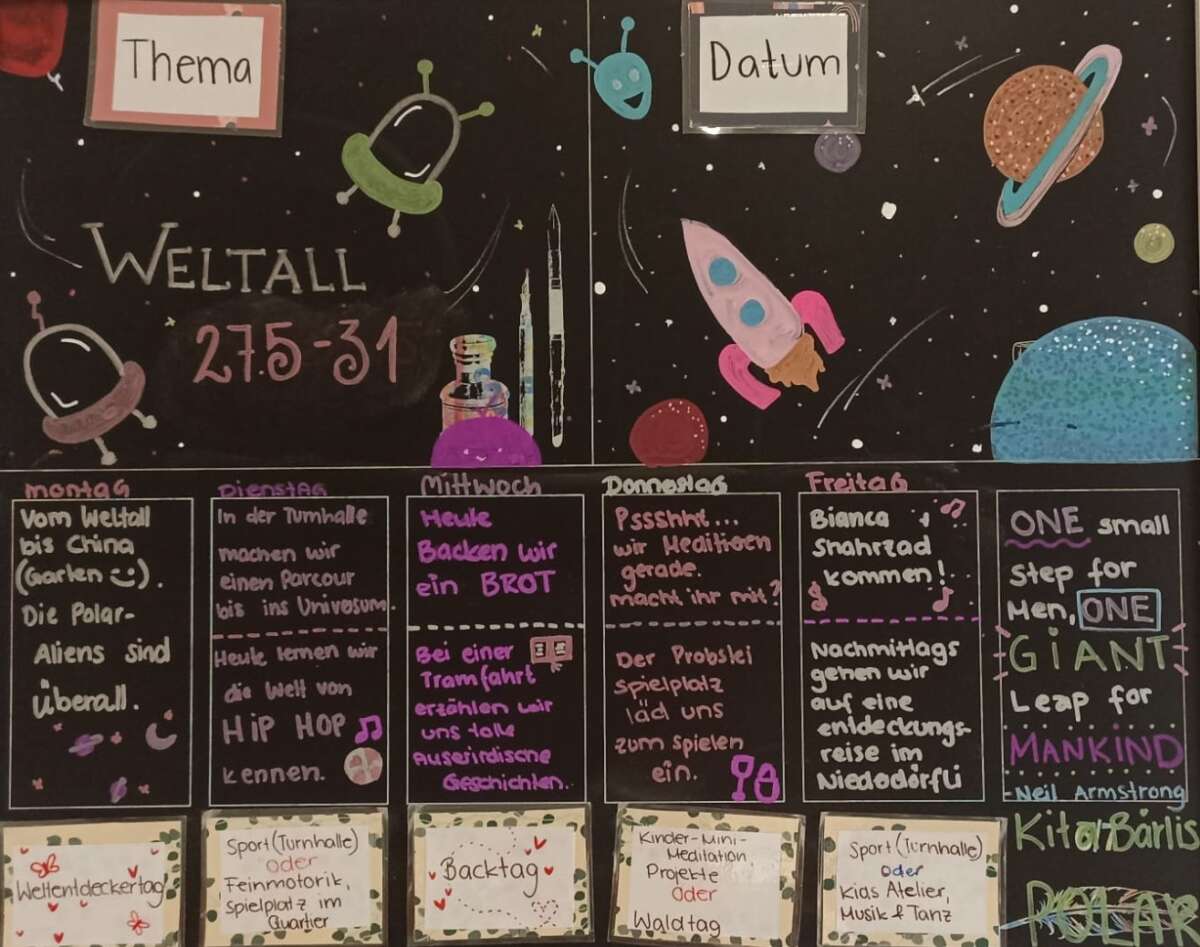 Thema
Datum
WELTALL
27.5-31
Montag
Vom Weltall
bis China
(Garten).
Die Polar-
Aliens sind
Überall.
Dienstag
In der Turnhalle
machen wir
einen Parcour
bis ins Universum.
Heute lernen wir
die Welt von
HIP HOP
kennen.
Mittwoch
Heute
Backen wir
ein BROT
Bei einer
Tramfahrt
erzählen wir
uns tolle
Auserirdische
Geschichten.
Donnestag
Pssshht...
wir Meditieren
gerade.
macht ihr mit?
Der Probstei
spielplatz
läd uns
zum spielen
ein.
Freitag
Bianca
Shahrzad
kommen!
Nachmittags
gehen wir
auf eine
entdeckungs-
reise im
Niederdörfli
ONE small
Step for
Men, ONE
GIANT
Leap for
MANKIND
-Neil Armstrong
Weltentdeckertag
Sport (Turnhalle)
oder
Feinmotorik,
Spielplatz im
Quartier
Backtag
Kinder-Mini-
Meditation
Projekte
Oder
Waldtag
Sport (Turnhalle)
oder
Kids Atelier,
Musik & Tanz
Bärlis
POLAR